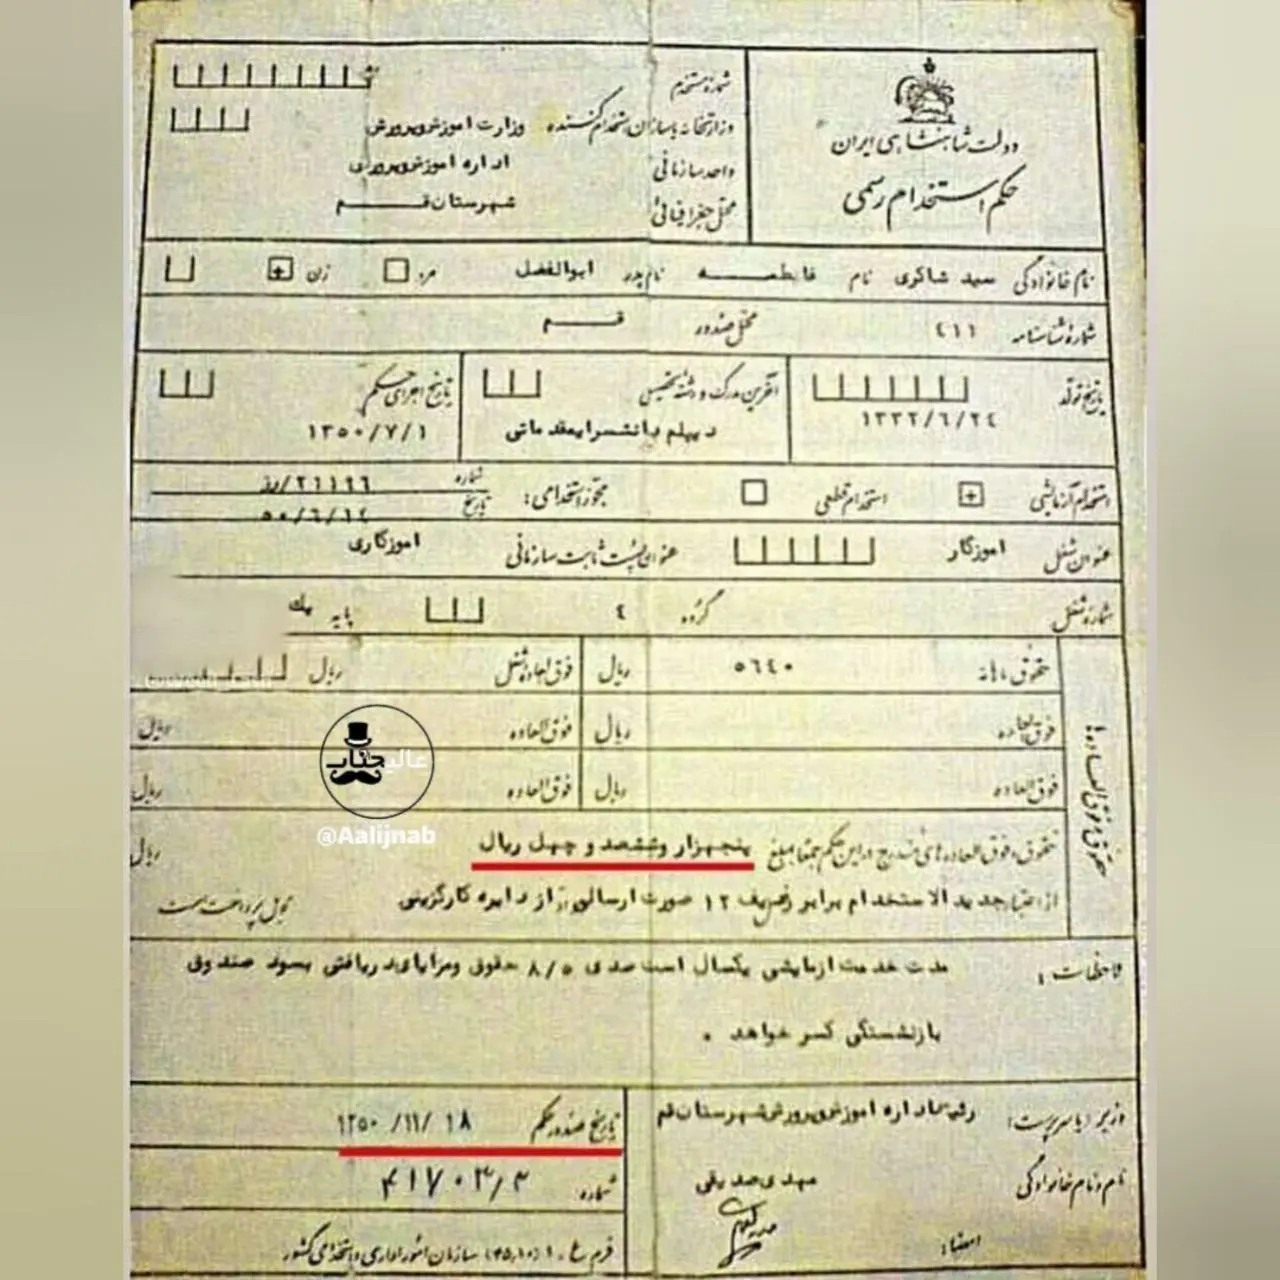 دولت شاهنشاهی ایران
حکم استخدام رسمی
شماره مستخدم
وزارتخانه یا سازمان استخدام کننده وزارت اموزش وپرورش
واحد سازمانی اداره اموزش وپرورش
محل جغرافیائی شهرستان قم
نام خانوادگی سید شاکری نام فاطمه نام پدر ابوالفضل مرد زن
شمارهٔ شناسنامه ٤١١ محل صدور قم
تاریخ تولد ١٣٣٢/٦/٢٤
آخرین مدرک و رشته تحصیلی دیپلم دانشسرایمقدماتی
تاریخ اجرای حکم ١٣٥٠/٧/١
استخدام آزمایشی استخدام قطعی مجوز استخدامی: شماره ٢١١٩٦/رز
تاریخ ٥٠/٦/١٤
عنوان شغل اموزگار عنوان پست ثابت سازمانی اموزگاری
شمارهٔ شغل گروه ٤ پایه یك
حقوق و فوق العاده ها
حقوق ماهانه ٥٦٤٠ ریال فوق العاده شغل ریال
فوق العاده ریال فوق العاده ریال
فوق العاده ریال فوق العاده ریال
عالیجناب
@Aalijnab
حقوق و فوق العاده های مندرج در این حکم جمعا بمبلغ پنجهزار وششصد و چهل ریال ریال
از اعتبار جدید الاستخدام برابر ردیف ١٢ صورت ارسالی از دایره کارگزینی قابل پرداخت است
ملاحظات : مدت خدمت ازمایشی یکسال است صدی ٨/٥ حقوق ومزایای دریافتی بسود صندوق
بازنشستگی کسر خواهد .
وزیر (یا سرپرست): رئیس اداره اموزش وپرورش شهرستان قم
نام و نام خانوادگی مهدی صدیقی
امضاء:
تاریخ صدور حکم ١٣٥٠/١١/١٨
شماره ۴۱۷۰۳/۳
فرم ع ـ ١ (١٠ـ٤٥) سازمان امور اداری و استخدامی کشور